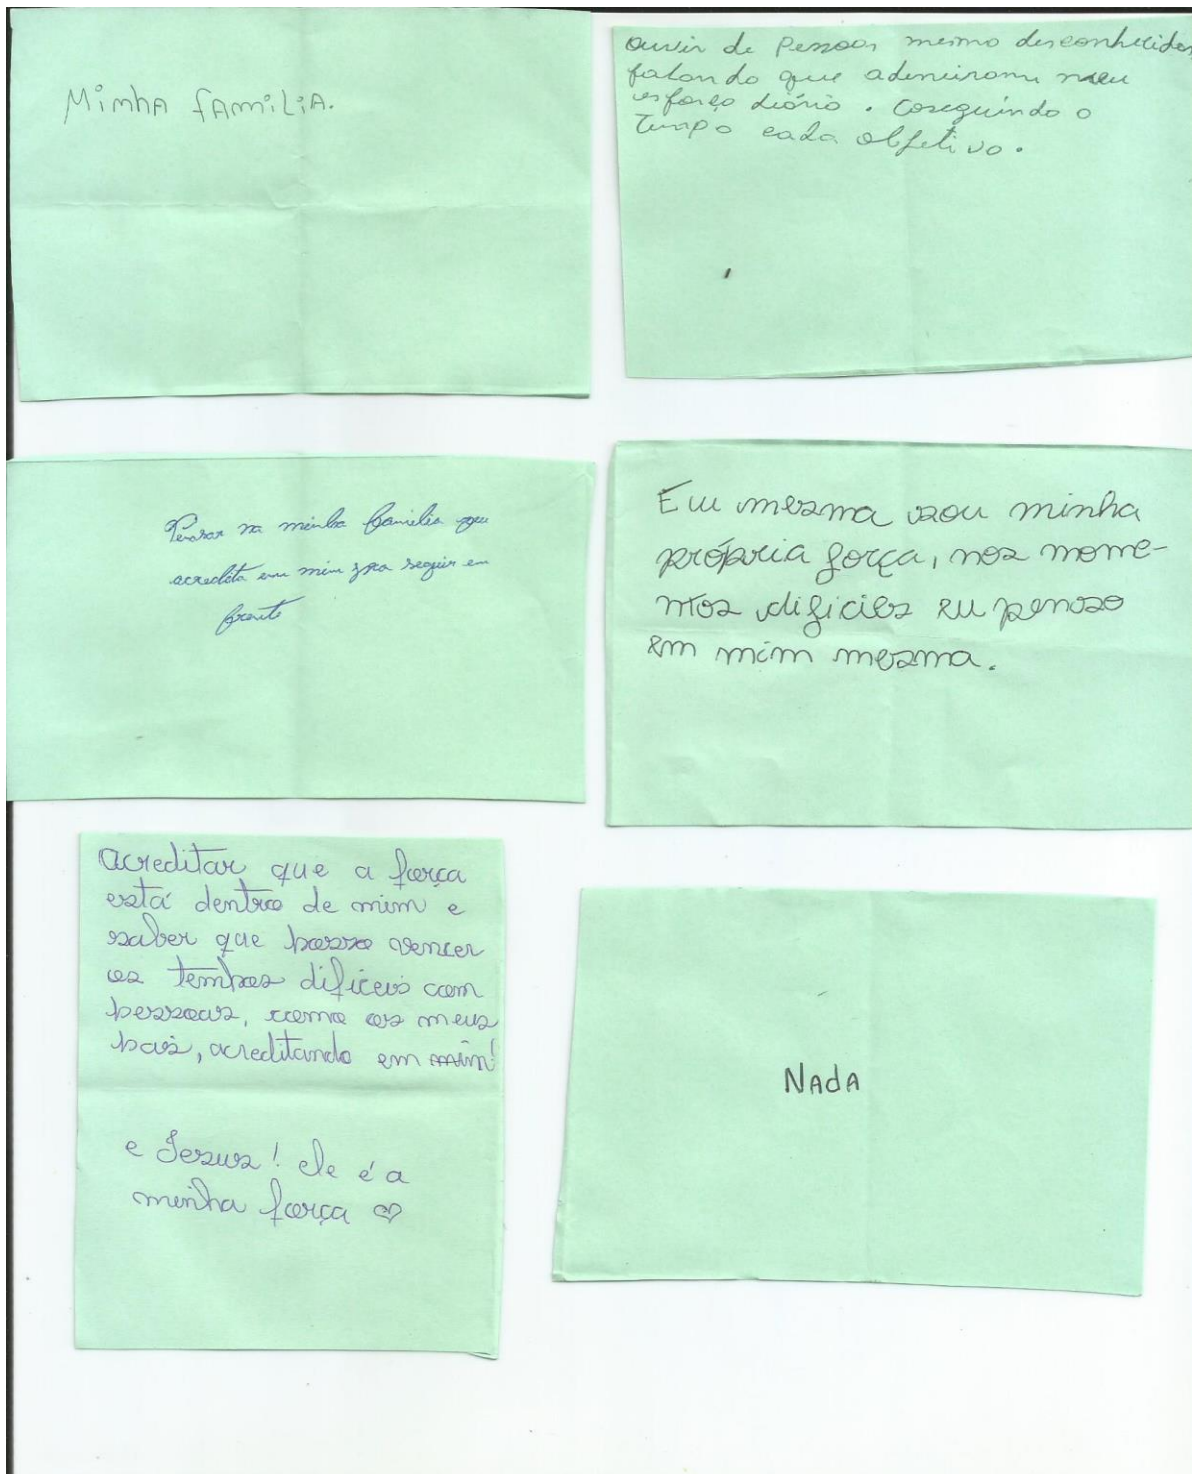 Minha família.
ouvir de Pessoas mesmo desconhecidas
falando que admiram meu
esforço diário. coseguindo o
Tempo cada objetivo.
Pensar na minha família que
acredita em mim pra seguir em
frente
Eu mesma sou minha
própria força, nos mome-
ntos dificies eu penso
em mim mesma.
acreditar que a força
está dentro de mim e
saber que posso vencer
os tempos difíceis com
pessoas, como os meus
pais, acreditando em mim!
e Jesus! ele é a
minha força ♡
NAdA